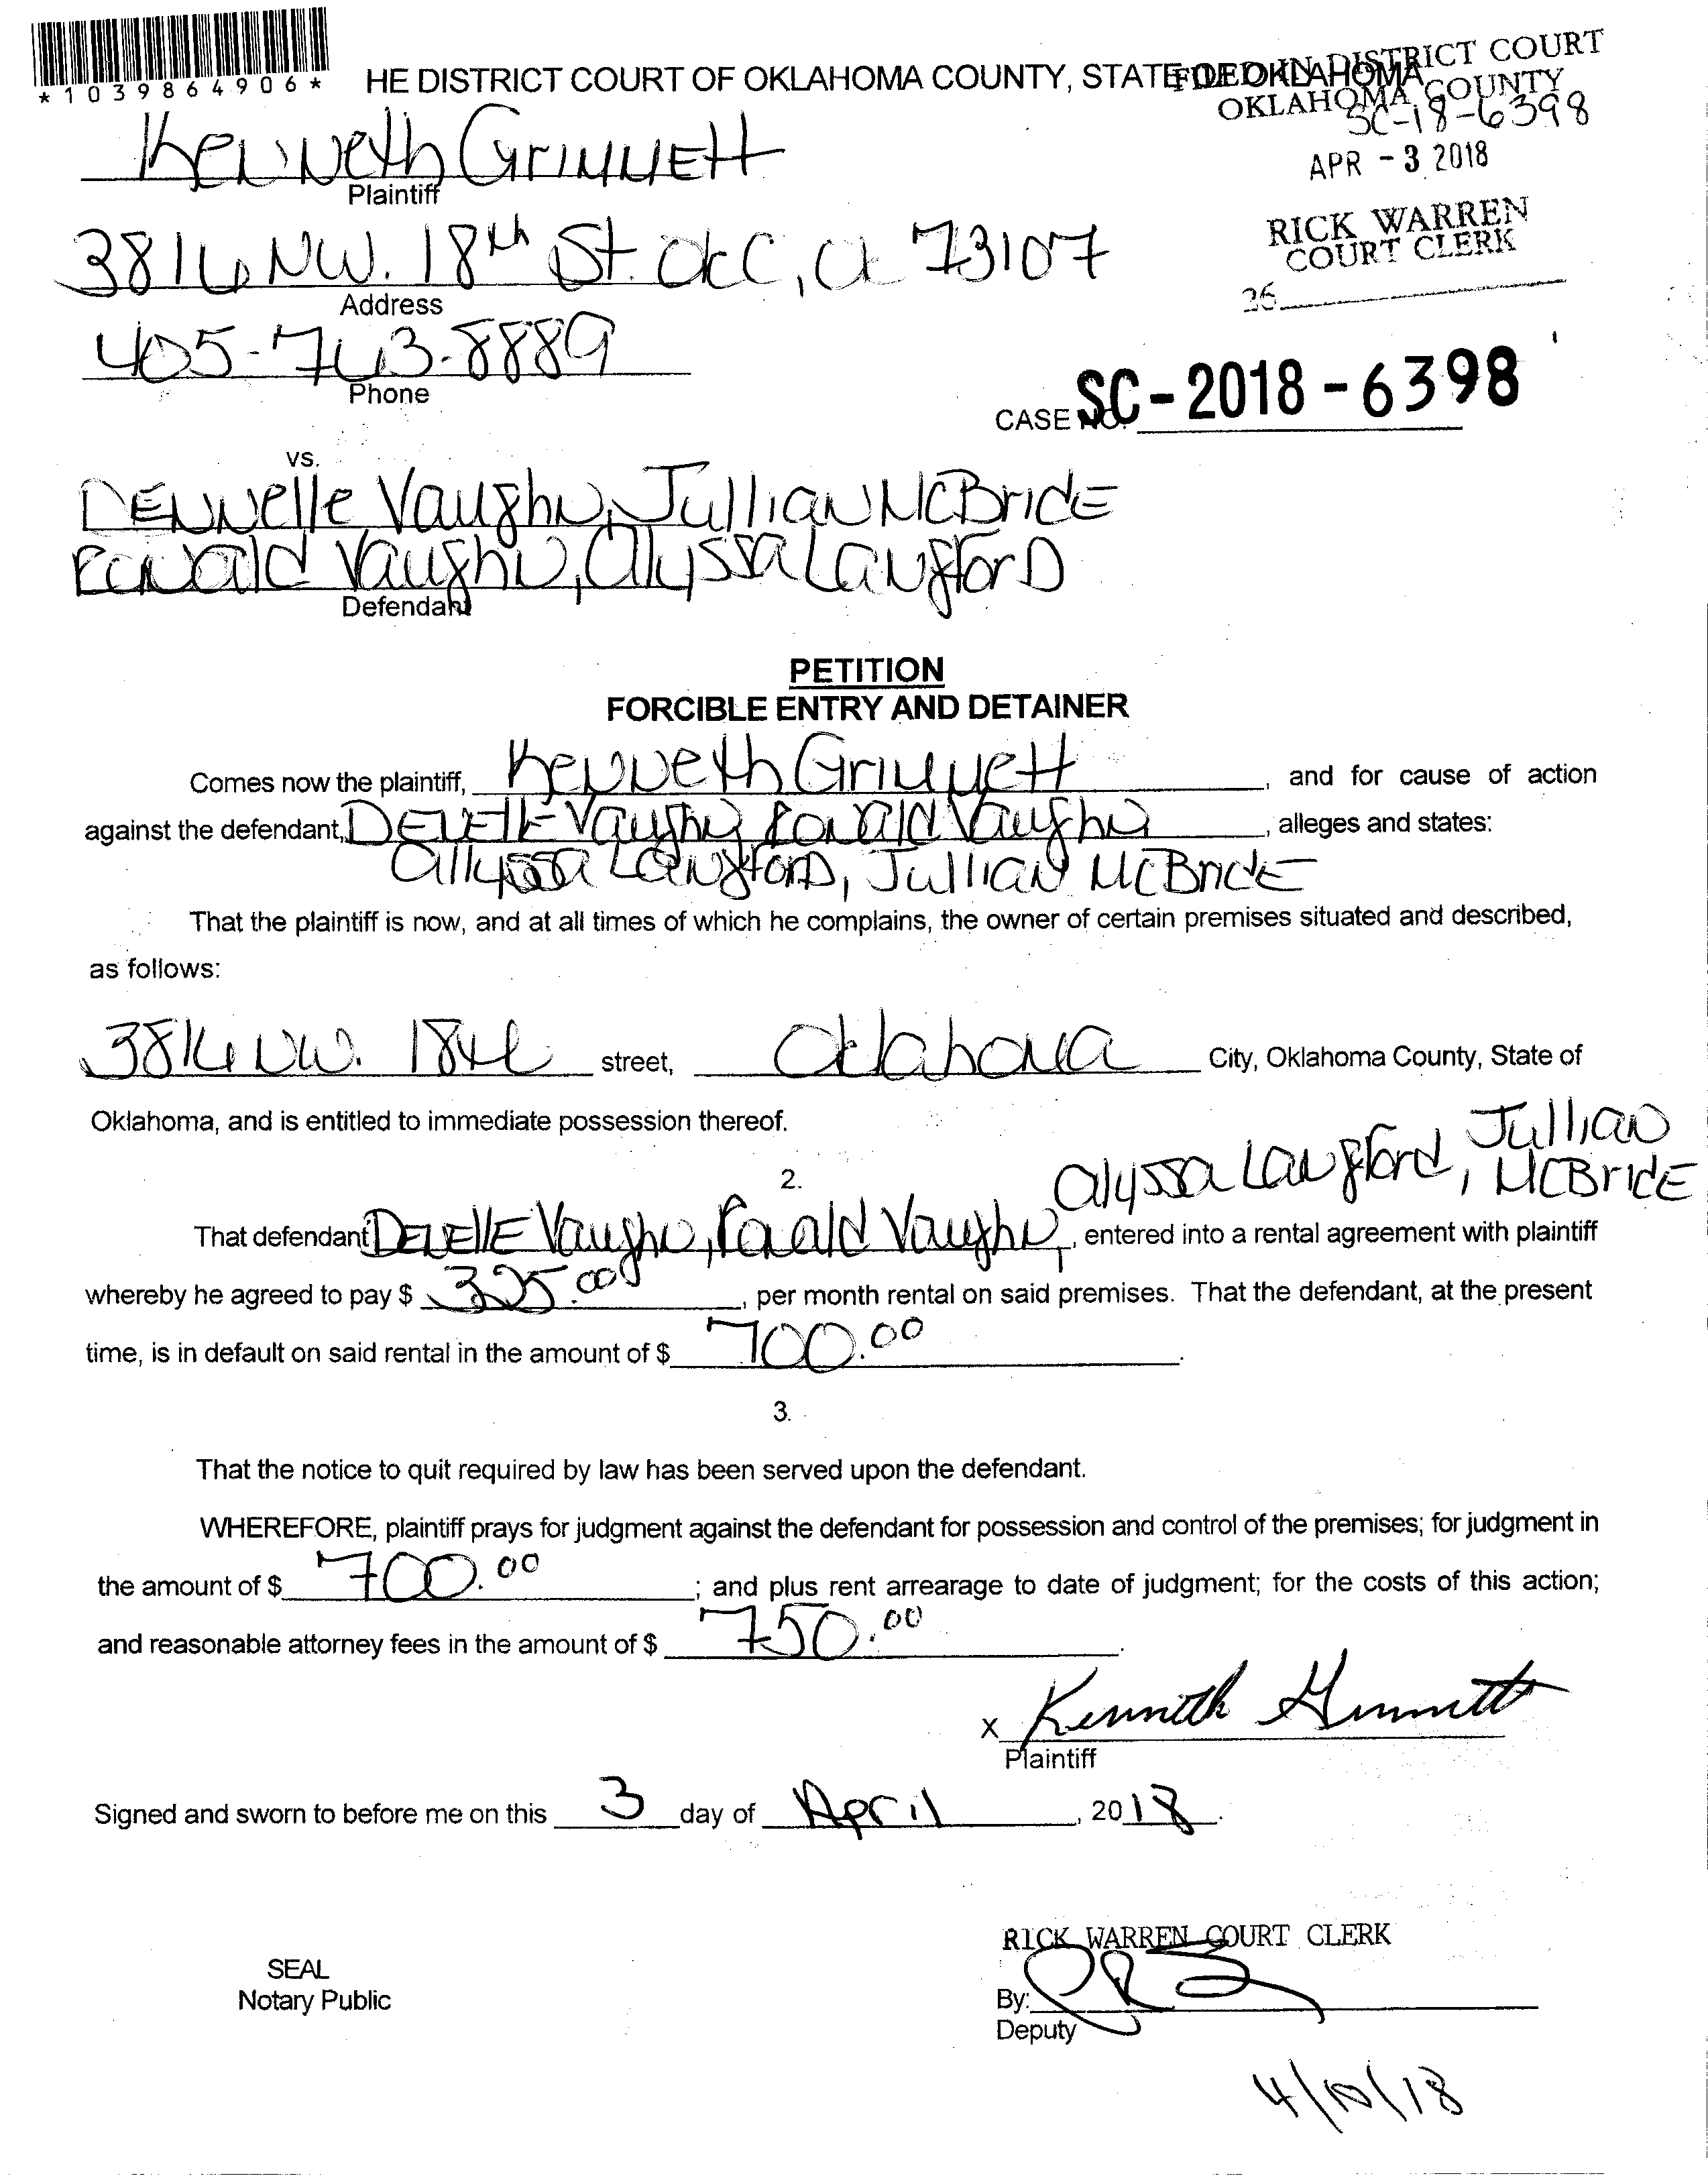 *1039864906*
HE DISTRICT COURT OF OKLAHOMA COUNTY, STATE OF OKLAHOMA
FILED IN DISTRICT COURT
OKLAHOMA COUNTY
SC-18-6398
APR - 3 2018
RICK WARREN
COURT CLERK
26
Kenneth Grimmett
Plaintiff
3816 NW. 18th St. OKC, Ok 73107
Address
405-763-8889
Phone
CASE NO. SC-2018-6398
vs.
DENNelle Vaughn, Jullian McBridE
Ronald Vaughn, Alyssa Langford
Defendant
PETITION
FORCIBLE ENTRY AND DETAINER
Comes now the plaintiff, Kenneth Grimmett, and for cause of action
against the defendant, DENEllE Vaughn Ronald Vaughn, alleges and states:
Allyssa Langford, Jullian McBridE
That the plaintiff is now, and at all times of which he complains, the owner of certain premises situated and described,
as follows:
3816 NW. 18th street, Oklahoma City, Oklahoma County, State of
Oklahoma, and is entitled to immediate possession thereof.
2.
Alyssa Langford, Jullian
McBridE
That defendant DENEllE Vaughn, Ronald Vaughn, entered into a rental agreement with plaintiff
whereby he agreed to pay $ 325.00, per month rental on said premises. That the defendant, at the present
time, is in default on said rental in the amount of $ 700.00.
3.
That the notice to quit required by law has been served upon the defendant.
WHEREFORE, plaintiff prays for judgment against the defendant for possession and control of the premises; for judgment in
the amount of $ 700.00; and plus rent arrearage to date of judgment; for the costs of this action;
and reasonable attorney fees in the amount of $ 750.00.
x Kenneth Grimmett
Plaintiff
Signed and sworn to before me on this 3 day of April, 2018.
RICK WARREN COURT CLERK
SEAL
Notary Public
By:
Deputy
4/10/18